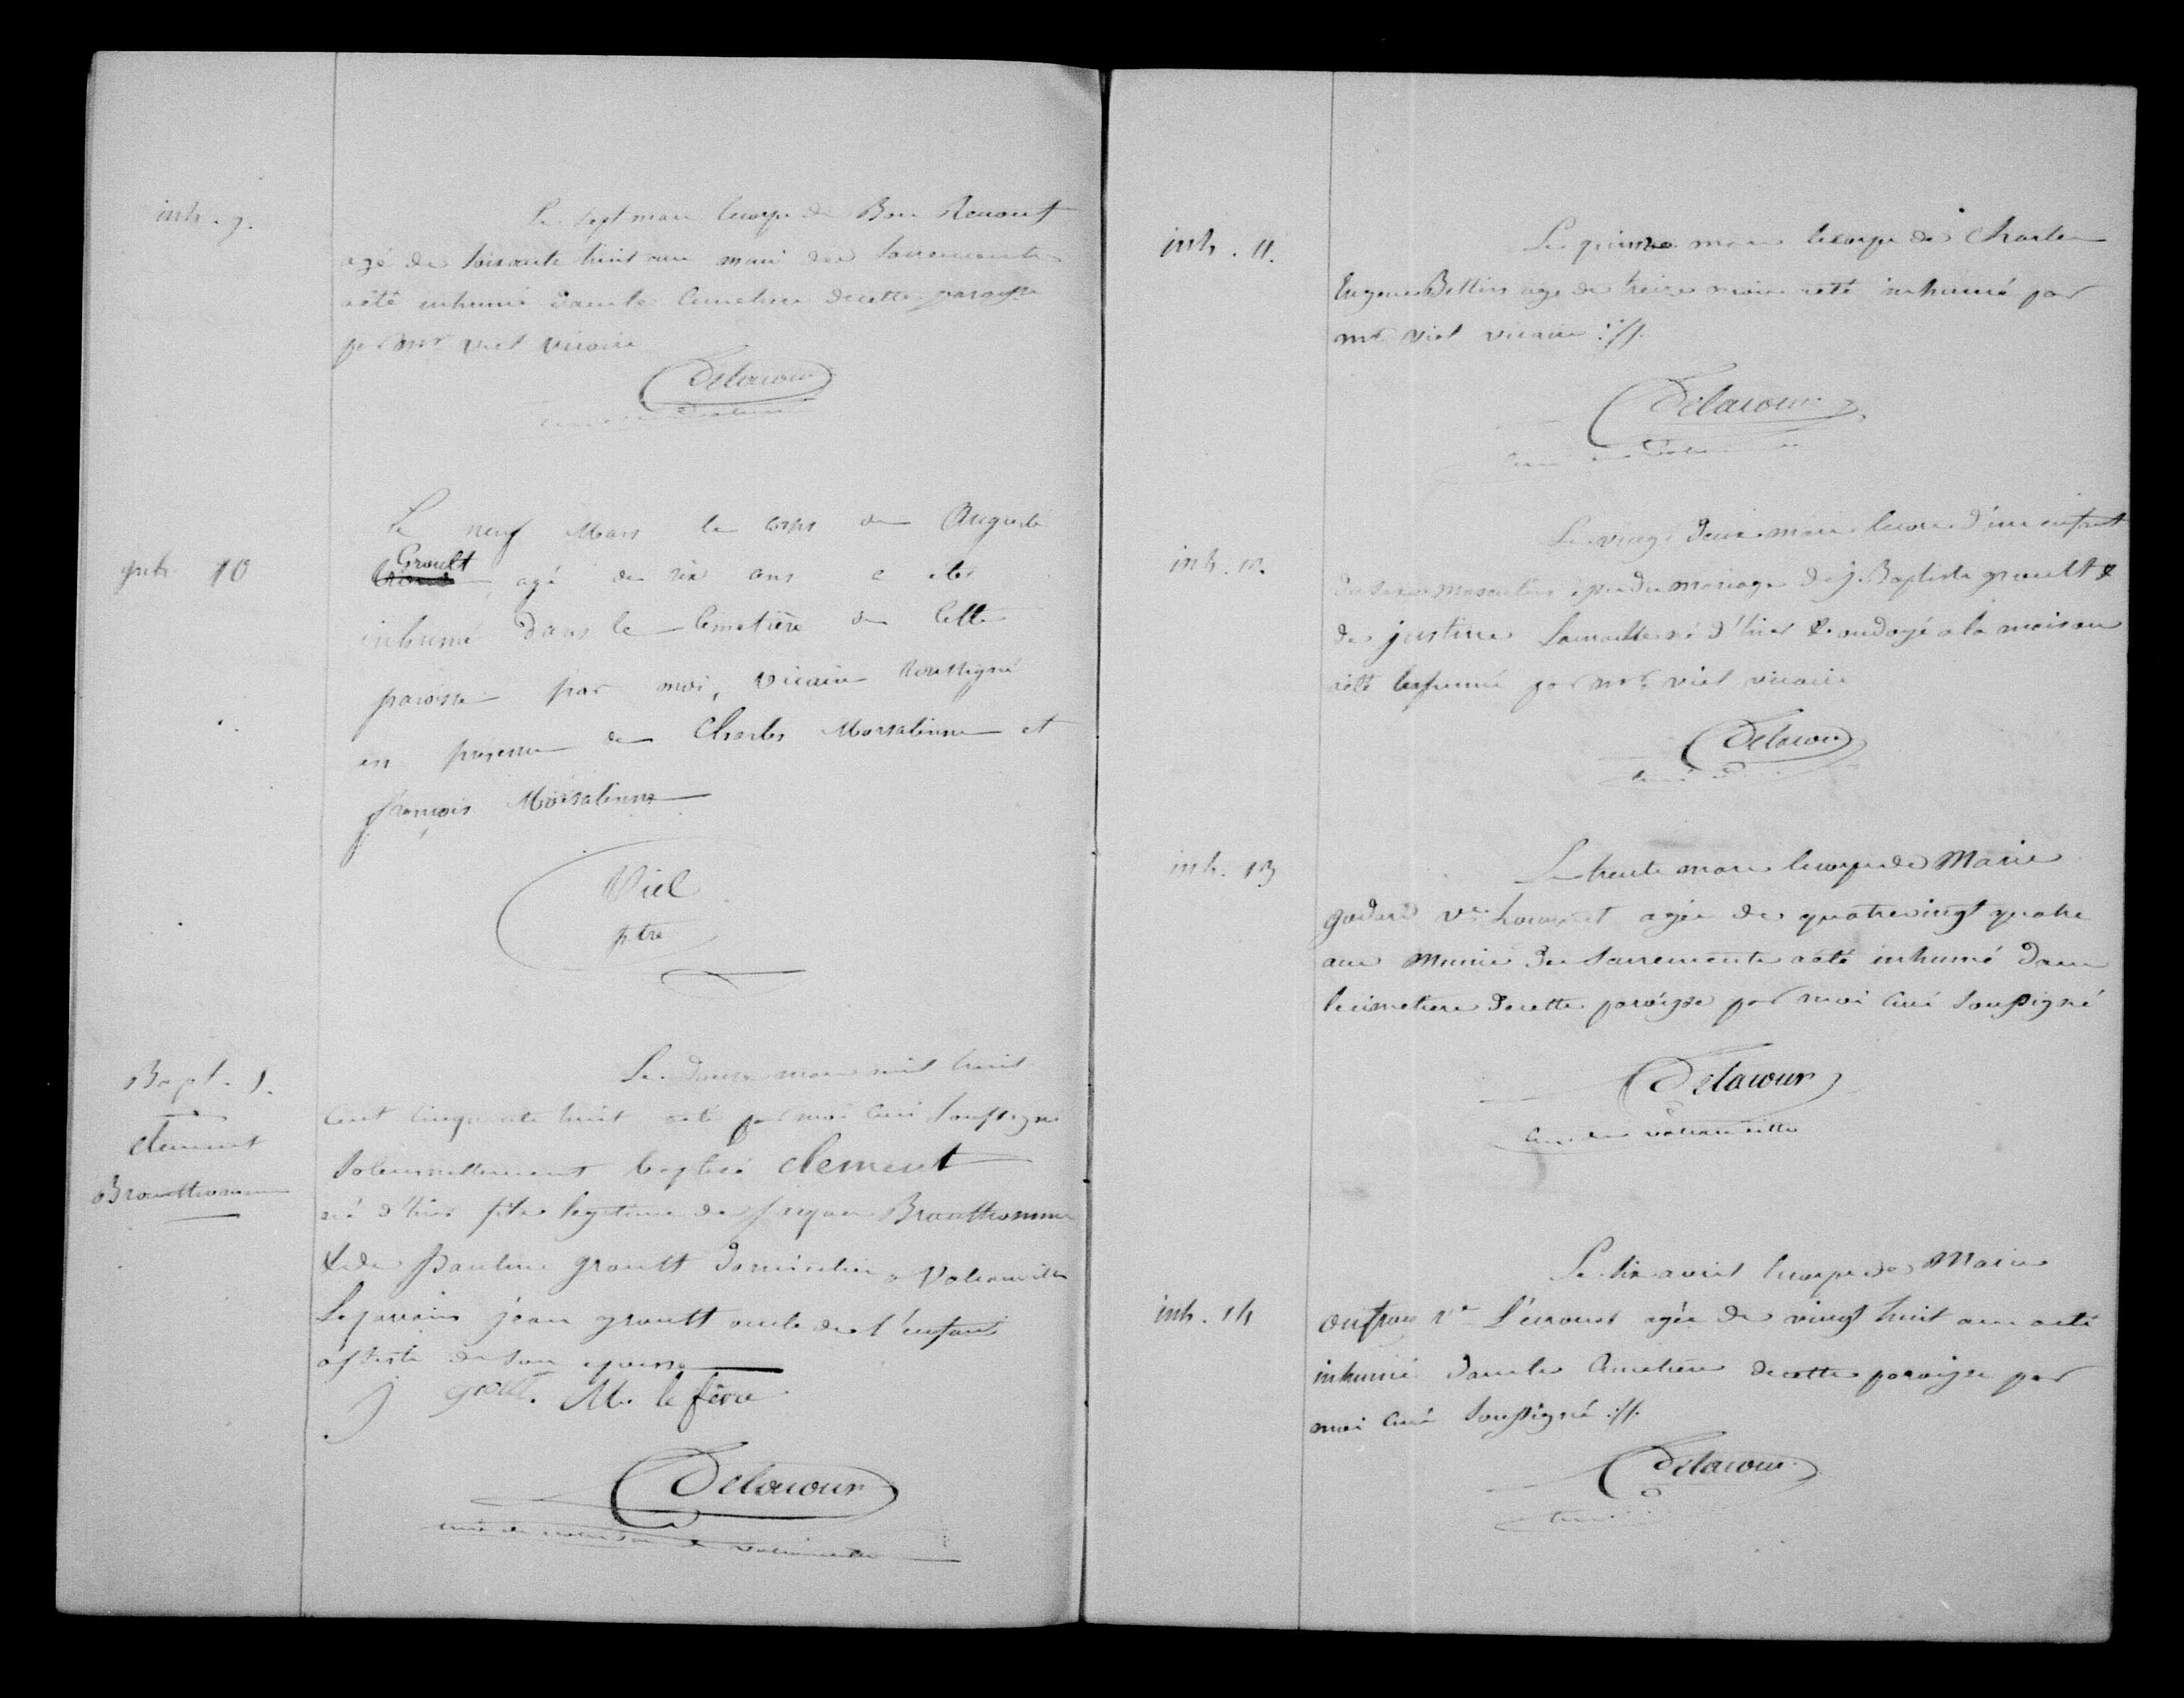 inh. 9.
Le sept mars le corps de Bon Renouf
agé de soixante huit ans muni des sacrements
a été inhumé dans le cimetiere de cette paroisse
par Mr viel vicaire
Delacour
inh. 10
Le neuf Mars le corps de Auguste
Groult
agé de six ans a été
inhumé dans le Cemetière de Cette
paroisse par moi, vicaire soussigné
en présence de Charles Morsalinne et
françois Morsalinne
Viel
ptre
Bapt. 5.
clement
Brantthomme
Le douze mars mil huit
cent cinquante huit a été par moi curé soussigné
solennellement baptisé clement
né d'hier fils legitime de jacques Brantthomme
& de pauline groult domiciliés a Valcanville
Le parrain jean groult oncle de l'enfant
assisté de son epouse
J groult. M. le fèvre
Delacour
inh. 11.
Le quinze mars le corps de Charles
Eugene Bellin agé de treize mois a été inhumé par
mr Viel vicaire ://.
Delacour
inh. 12.
Le vingt deux mars le corps d'un enfant
du sexe masculin issu du mariage de j. Baptiste groult &
de justine né d'hier & ondoyé a la maison
a été inhumé par mr. viel vicaire
Delacour
inh. 13
Le trente mars le corps de Marie
godard ve agée de quatre vingt quatre
ans munie des sacrements a été inhumé dans
le cimetiere de cette paroisse par moi curé soussigné
Delacour
curé de valcanville
inh. 14
Le six avril le corps de Marie
ve agée de vingt huit ans a été
inhumé dans le cimetiere de cette paroisse par
moi curé soussigné ://.
Delacour